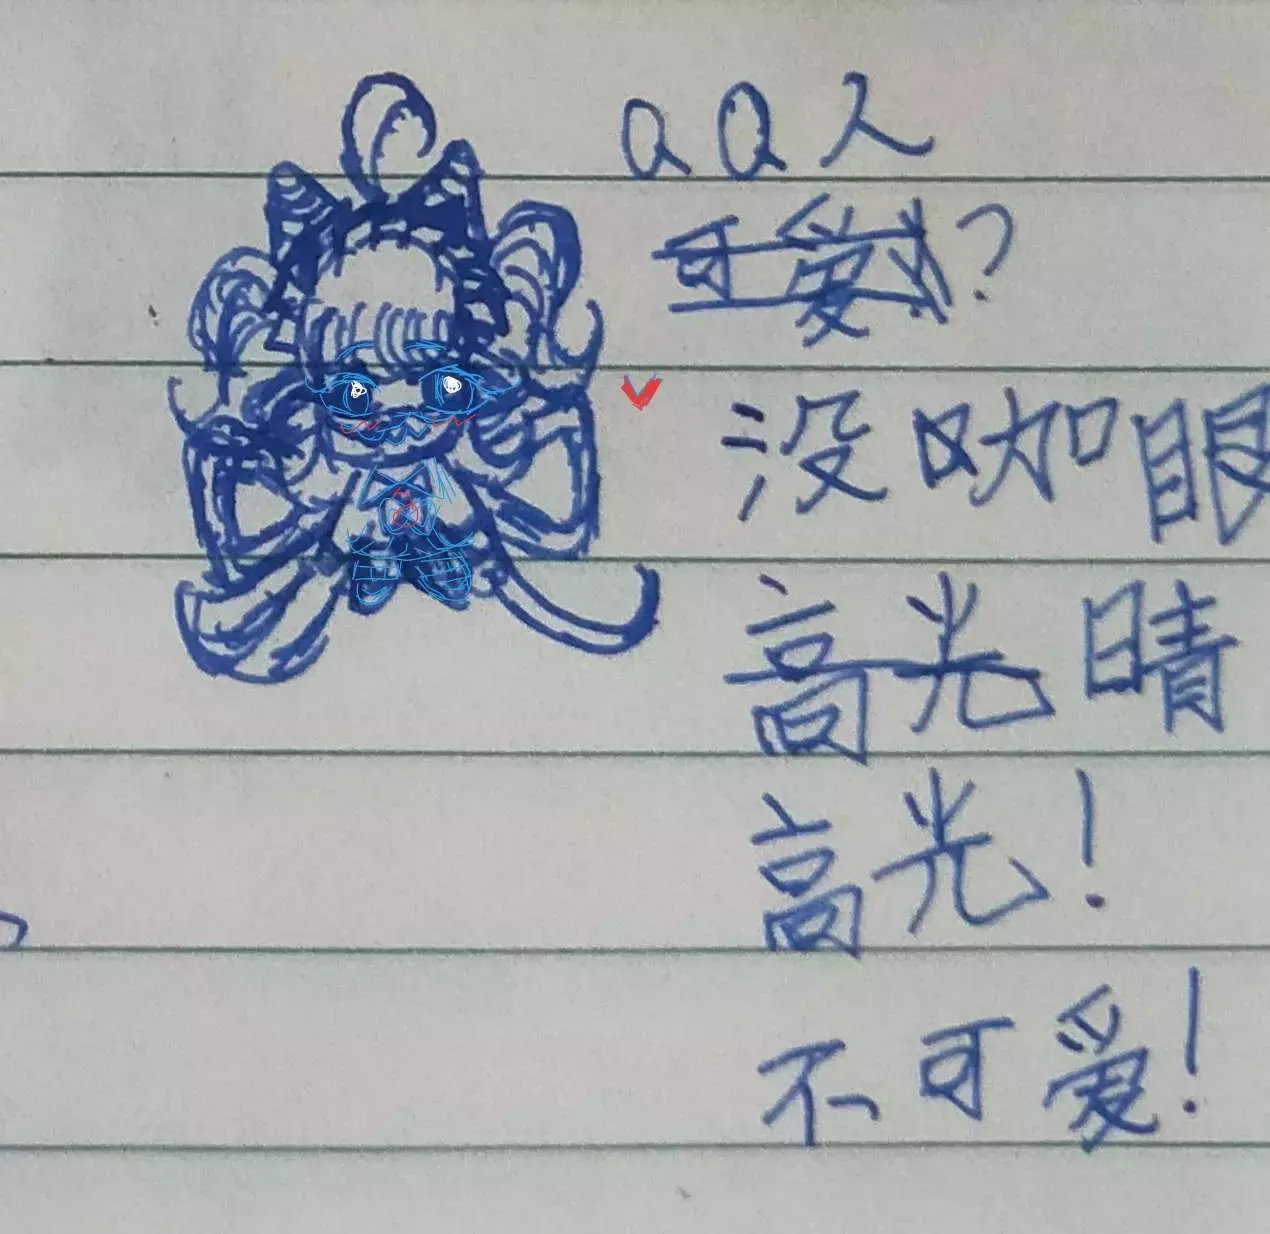 QQ人
可爱?
没咖眼
高光晴
高光!
不可爱!